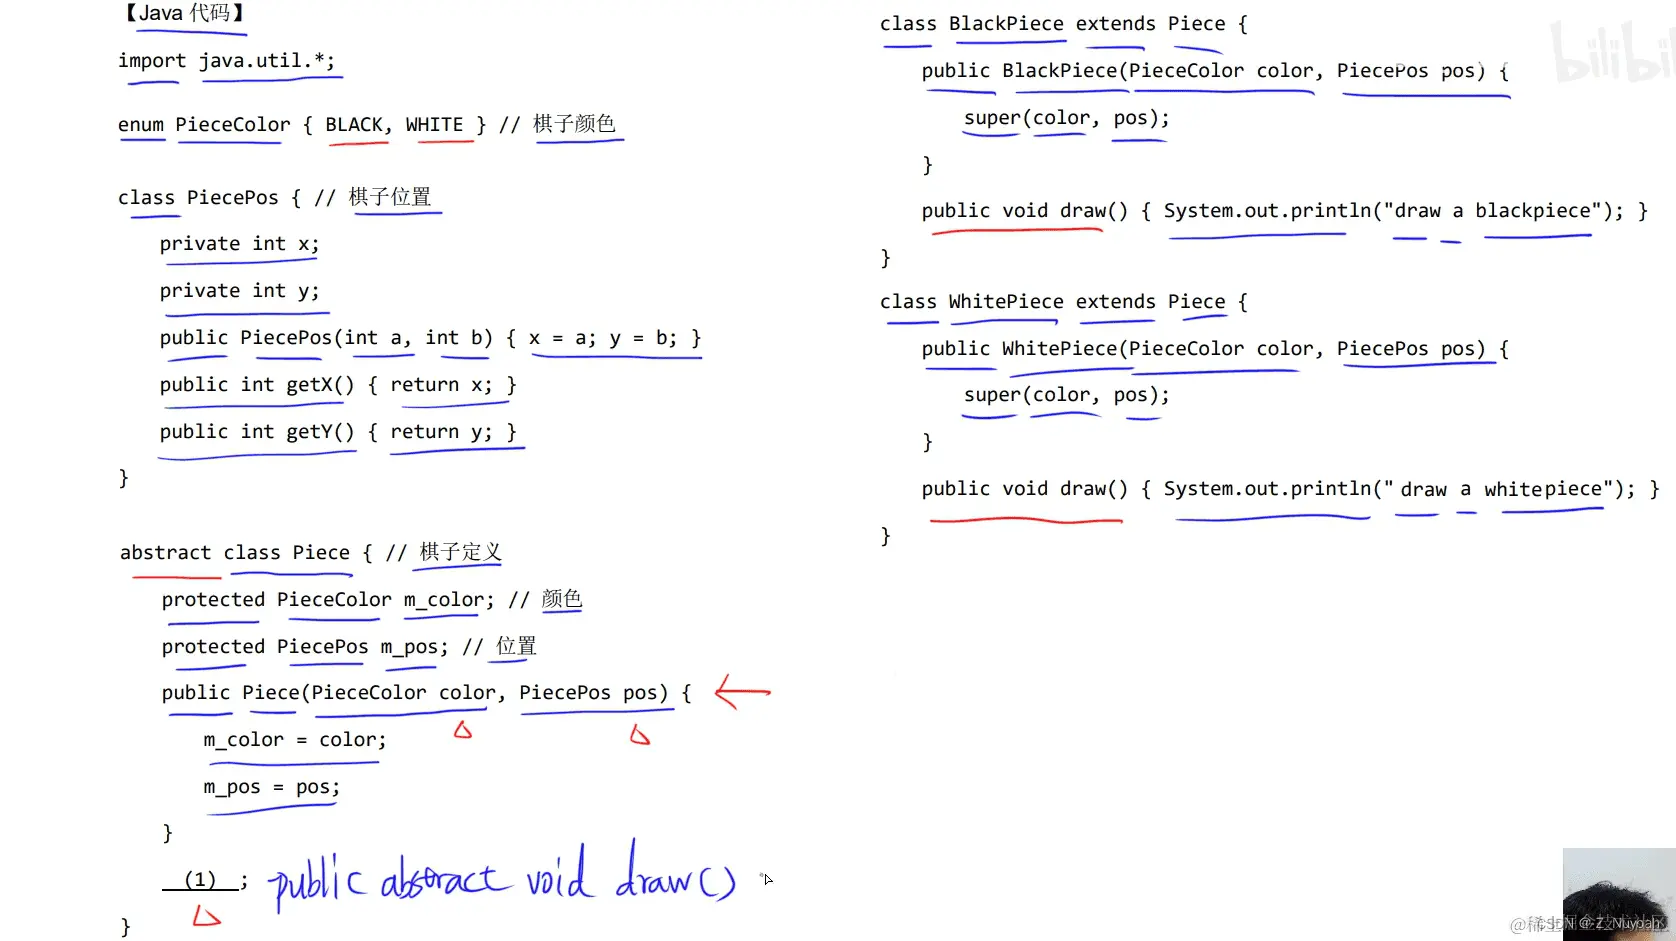 【Java 代码】
import java.util.*;
enum PieceColor { BLACK, WHITE } // 棋子颜色
class PiecePos { // 棋子位置
private int x;
private int y;
public PiecePos(int a, int b) { x = a; y = b; }
public int getX() { return x; }
public int getY() { return y; }
}
abstract class Piece { // 棋子定义
protected PieceColor m_color; // 颜色
protected PiecePos m_pos; // 位置
public Piece(PieceColor color, PiecePos pos) {
m_color = color;
m_pos = pos;
}
(1) ; public abstract void draw()
}
class BlackPiece extends Piece {
public BlackPiece(PieceColor color, PiecePos pos) {
super(color, pos);
}
public void draw() { System.out.println("draw a blackpiece"); }
}
class WhitePiece extends Piece {
public WhitePiece(PieceColor color, PiecePos pos) {
super(color, pos);
}
public void draw() { System.out.println(" draw a whitepiece"); }
}
bilibili